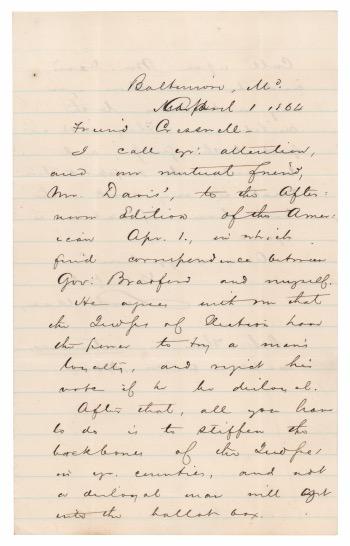 Baltimore, Md.
April 1, 1864
Friend Cresswell-
I call yr: attention,
and our mutual friend,
Mr. Davis', to the After-
noon Edition of the Amer-
ican Apr. 1., in which
find correspondence between
Gov: Bradford and myself.
He agrees with me that
the Judges of Election have
the power to try a man's
loyalty, and reject his
vote if he be disloyal.
After that, all you have
to do is to stiffen the
backbones of the Judges
in yr. counties, and not
a disloyal man will get
into the ballot box.